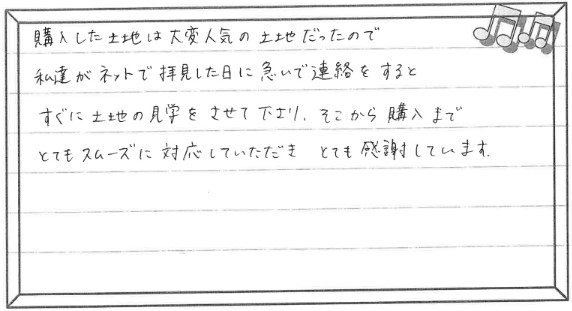 購入した土地は大変人気の土地だったので
私達がネットで拝見した日に急いで連絡をすると
すぐに土地の見学をさせて下さり、そこから購入まで
とてもスムーズに対応していただき とても感謝しています。